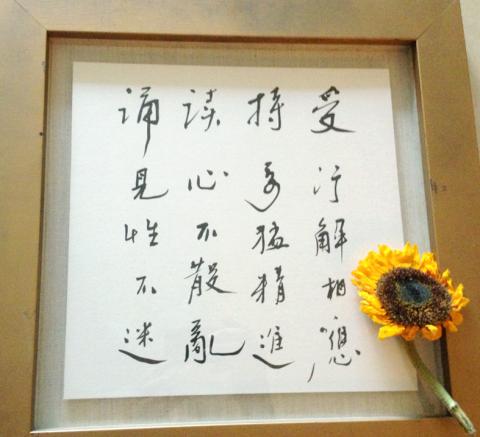 受行解相應
持勇猛精進
读心不散亂
誦見性不迷